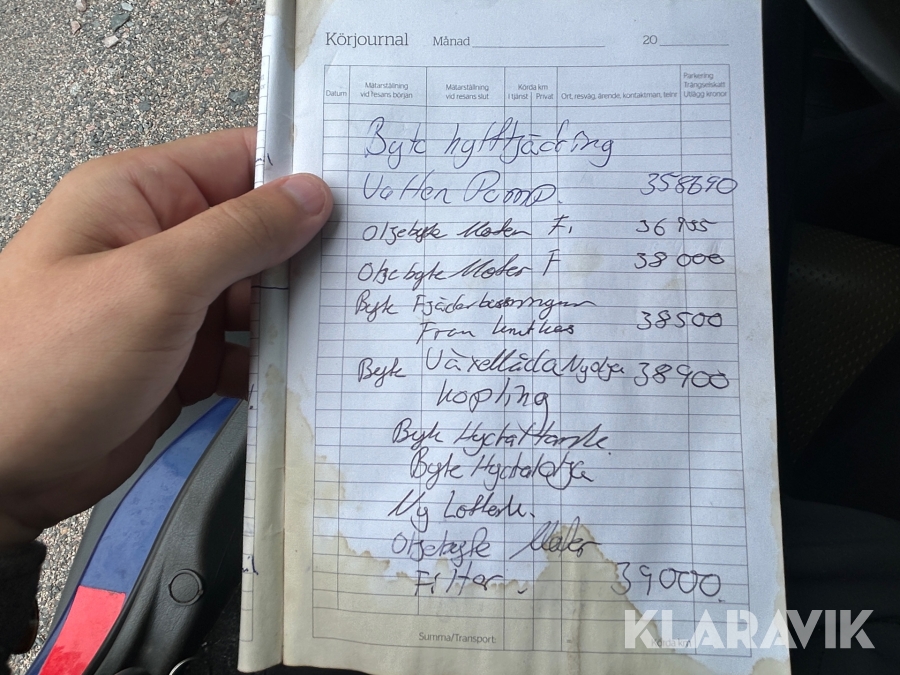 Körjournal Månad 20
Datum Mätarställning vid resans början Mätarställning vid resans slut Körda km I tjänst Privat Ort, resväg, ärende, kontaktman, telnr Parkering Trängselskatt Utlägg kronor
Byte hyttfjädring
Vatten Pomp. 358690
Oljebyte Moter F, 36955
Oljebyte Moter F 38000
Byte Fjäderbussningar
Fram 38500
Byte Växellåda Ny olja 38900
kopling
Byte
Byte
Ny
Oljebyte Moter
Filter. 39000.
Summa/Transport: Körda km
KLARAVIK